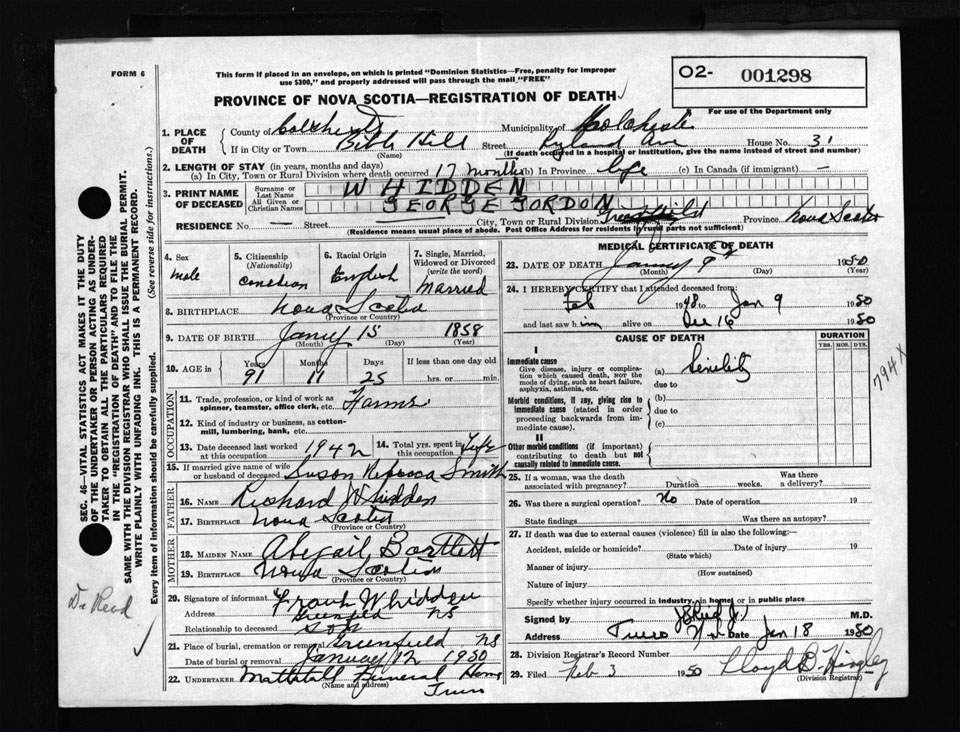 FORM 6
This form if placed in an envelope, on which is printed "Dominion Statistics—Free, penalty for improper
use $300," and properly addressed will pass through the mail "FREE"
O2- 001298
For use of the Department only
PROVINCE OF NOVA SCOTIA—REGISTRATION OF DEATH
1. PLACE OF DEATH
County of Colchester Municipality of Colchester
If in City or Town Bible Hill Street Ryland Ave House No. 31
(Name) (If death occurred in a hospital or institution, give the name instead of street and number)
2. LENGTH OF STAY (in years, months and days)
(a) In City, Town or Rural Division where death occurred 17 months (b) In Province life (c) In Canada (if immigrant) —
3. PRINT NAME OF DECEASED
Surname or Last Name WHIDDEN
All Given or Christian Names GEORGE GORDON
RESIDENCE No. — Street City, Town or Rural Division Greenfield Province Nova Scotia
(Residence means usual place of abode. Post Office Address for residents in rural parts not sufficient)
4. Sex male
5. Citizenship (Nationality) Canadian
6. Racial Origin English
7. Single, Married, Widowed or Divorced (write the word) Married
8. BIRTHPLACE Nova Scotia
(Province or Country)
9. DATE OF BIRTH Jany 15 1858
(Month) (Day) (Year)
10. AGE in Years Months Days If less than one day old
91 11 25 hrs. or min.
OCCUPATION
11. Trade, profession, or kind of work as
spinner, teamster, office clerk, etc. Farmer
12. Kind of industry or business, as cotton-
mill, lumbering, bank, etc.
13. Date deceased last worked at this occupation 1942
14. Total yrs. spent in this occupation Life
15. If married give name of wife or husband of deceased Susan Rebecca Smith
FATHER
16. NAME Richard Whidden
17. BIRTHPLACE Nova Scotia
(Province or Country)
MOTHER
18. MAIDEN NAME Abegail Bartlett
19. BIRTHPLACE Nova Scotia
(Province or Country)
20. Signature of informant Frank Whidden
Address Greenfield NS
Relationship to deceased Son
21. Place of burial, cremation or removal Greenfield NS
Date of burial or removal January 12 1950
22. UNDERTAKER Mattatall Funeral Home
(Name and address) Truro
MEDICAL CERTIFICATE OF DEATH
23. DATE OF DEATH Jany 9th 1950
(Month) (Day) (Year)
24. I HEREBY CERTIFY that I attended deceased from:
Feb 1948 to Jan 9 1950
and last saw him alive on Dec 16 1950
CAUSE OF DEATH
DURATION
YRS. MOS. DYS.
I
Immediate cause
Give disease, injury or complica-
tion which caused death, not the
mode of dying, such as heart failure,
asphyxia, asthenia, etc.
(a) Senility
due to
Morbid conditions, if any, giving rise to
immediate cause (stated in order
proceeding backwards from im-
mediate cause).
(b)
due to
(c)
II
Other morbid conditions (if important)
contributing to death but not
causally related to immediate cause.
794 X
25. If a woman, was the death associated with pregnancy? Duration weeks. Was there a delivery?
26. Was there a surgical operation? No Date of operation 19
State findings Was there an autopsy?
27. If death was due to external causes (violence) fill in also the following:—
Accident, suicide or homicide? Date of injury 19
(State which)
Manner of injury
(How sustained)
Nature of injury
Specify whether injury occurred in industry, in home, or in public place
Signed by M.D.
Address Truro N.S. Date Jan 18 1950
28. Division Registrar's Record Number
29. Filed Feb 3 1950 Lloyd B. Hingley
(Division Registrar)
SEC. 46—VITAL STATISTICS ACT MAKES IT THE DUTY
OF THE UNDERTAKER OR PERSON ACTING AS UNDER-
TAKER TO OBTAIN ALL THE PARTICULARS REQUIRED
IN THE "REGISTRATION OF DEATH" AND TO FILE THE
SAME WITH THE DIVISION REGISTRAR WHO SHALL ISSUE THE BURIAL PERMIT.
WRITE PLAINLY WITH UNFADING INK. THIS IS A PERMANENT RECORD.
Every item of information should be carefully supplied. (See reverse side for instructions.)
Dr Read